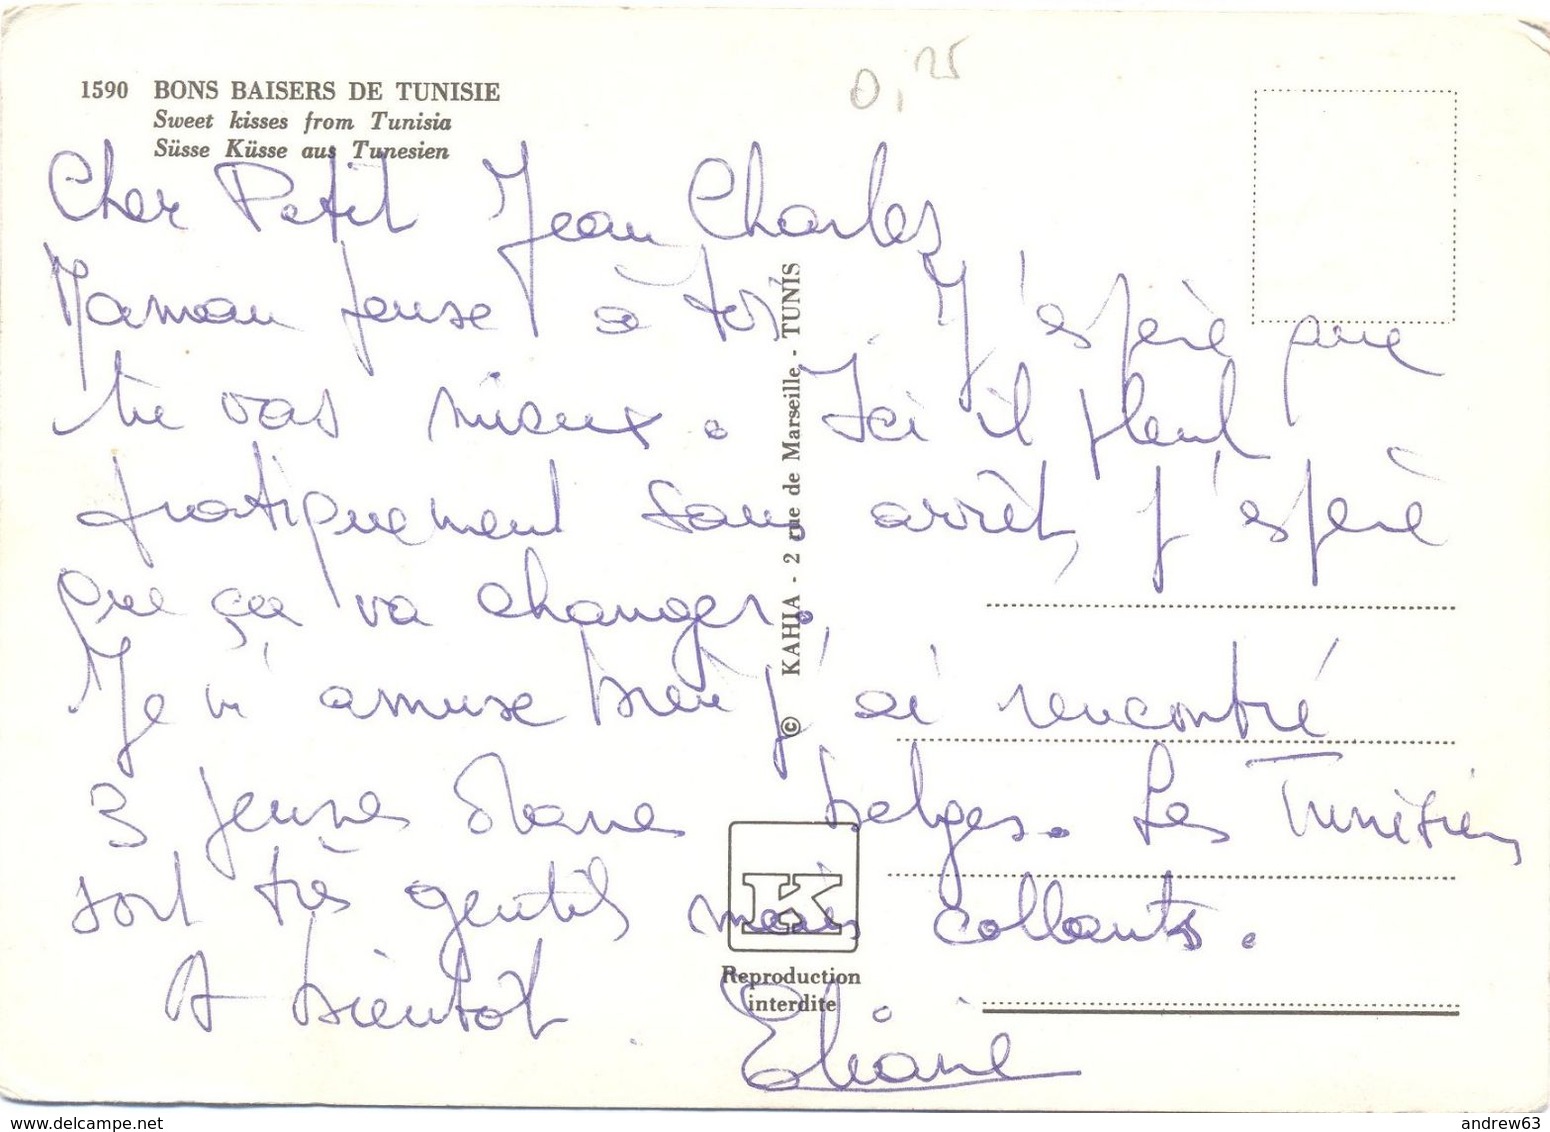 0,25
1590 BONS BAISERS DE TUNISIE
Sweet kisses from Tunisia
Süsse Küsse aus Tunesien
Cher Petit Jean Charles
Maman pense à toi J'espère que
tu vas mieux. Ici il pleut
pratiquement sans arrêt, j'espère
que ça va changer.
Je m'amuse bien j'ai rencontré
3 jeunes belges. Les Tunisiens
sont très gentils mais collants.
A bientôt.
Eliane
© KAHIA - 2 rue de Marseille - TUNIS
K
Reproduction
interdite
www.delcampe.net
andrew63